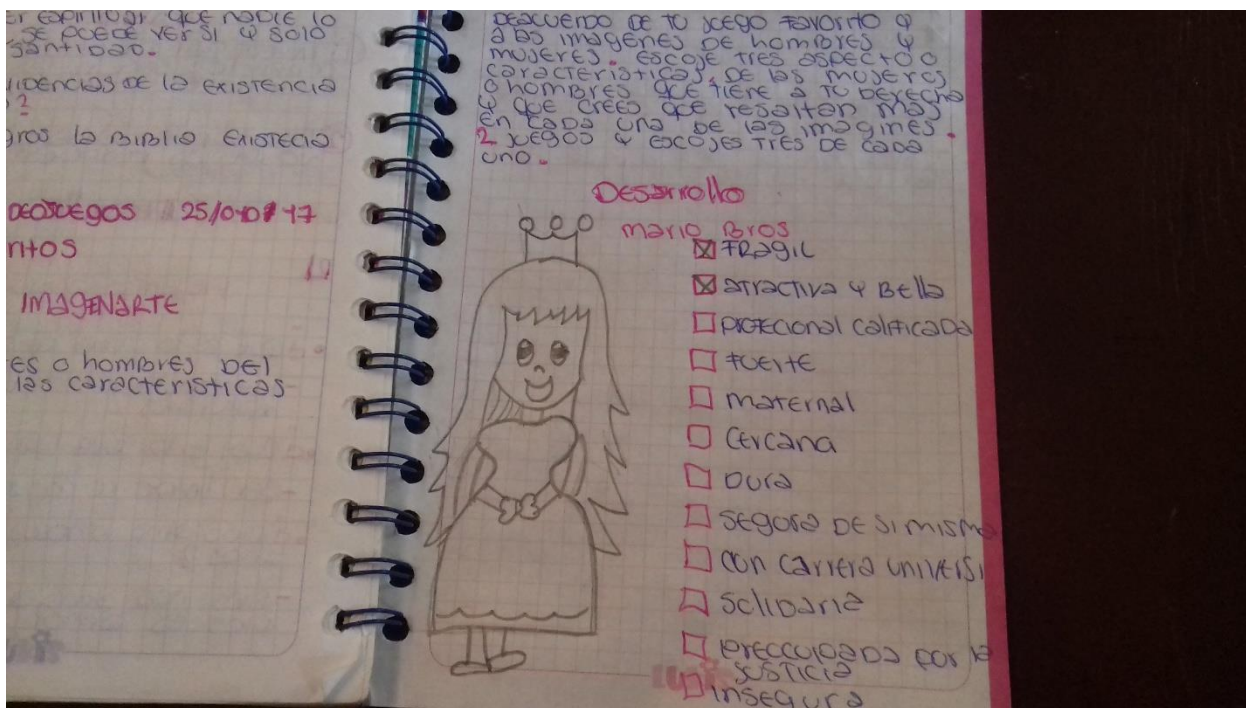 espiritual que nadie lo
se puede ver si y solo
santidad.
videncias de la existencia
?
gros la Biblia existecia
deojuegos 25/040 17
ntos
imagenarte
es o hombres del
las caracteristicas
deacuerdo de tu juego favorito y
a las imagenes de hombres y
mujeres. escoje tres aspecto o
caracteristicas, de las mujeres
o hombres que tiene a tu derecha
y que crees que resalten mas
en cada una de las imagines.
2 juegos y escojes tres de cada
uno.
Desarrollo
mario Bros
Fragil
atractiva y Bella
profecional calificada
fuerte
maternal
cercana
Dura
segura de si misma
con carrera universi
solidaria
preocupada por la
justicia
insegura